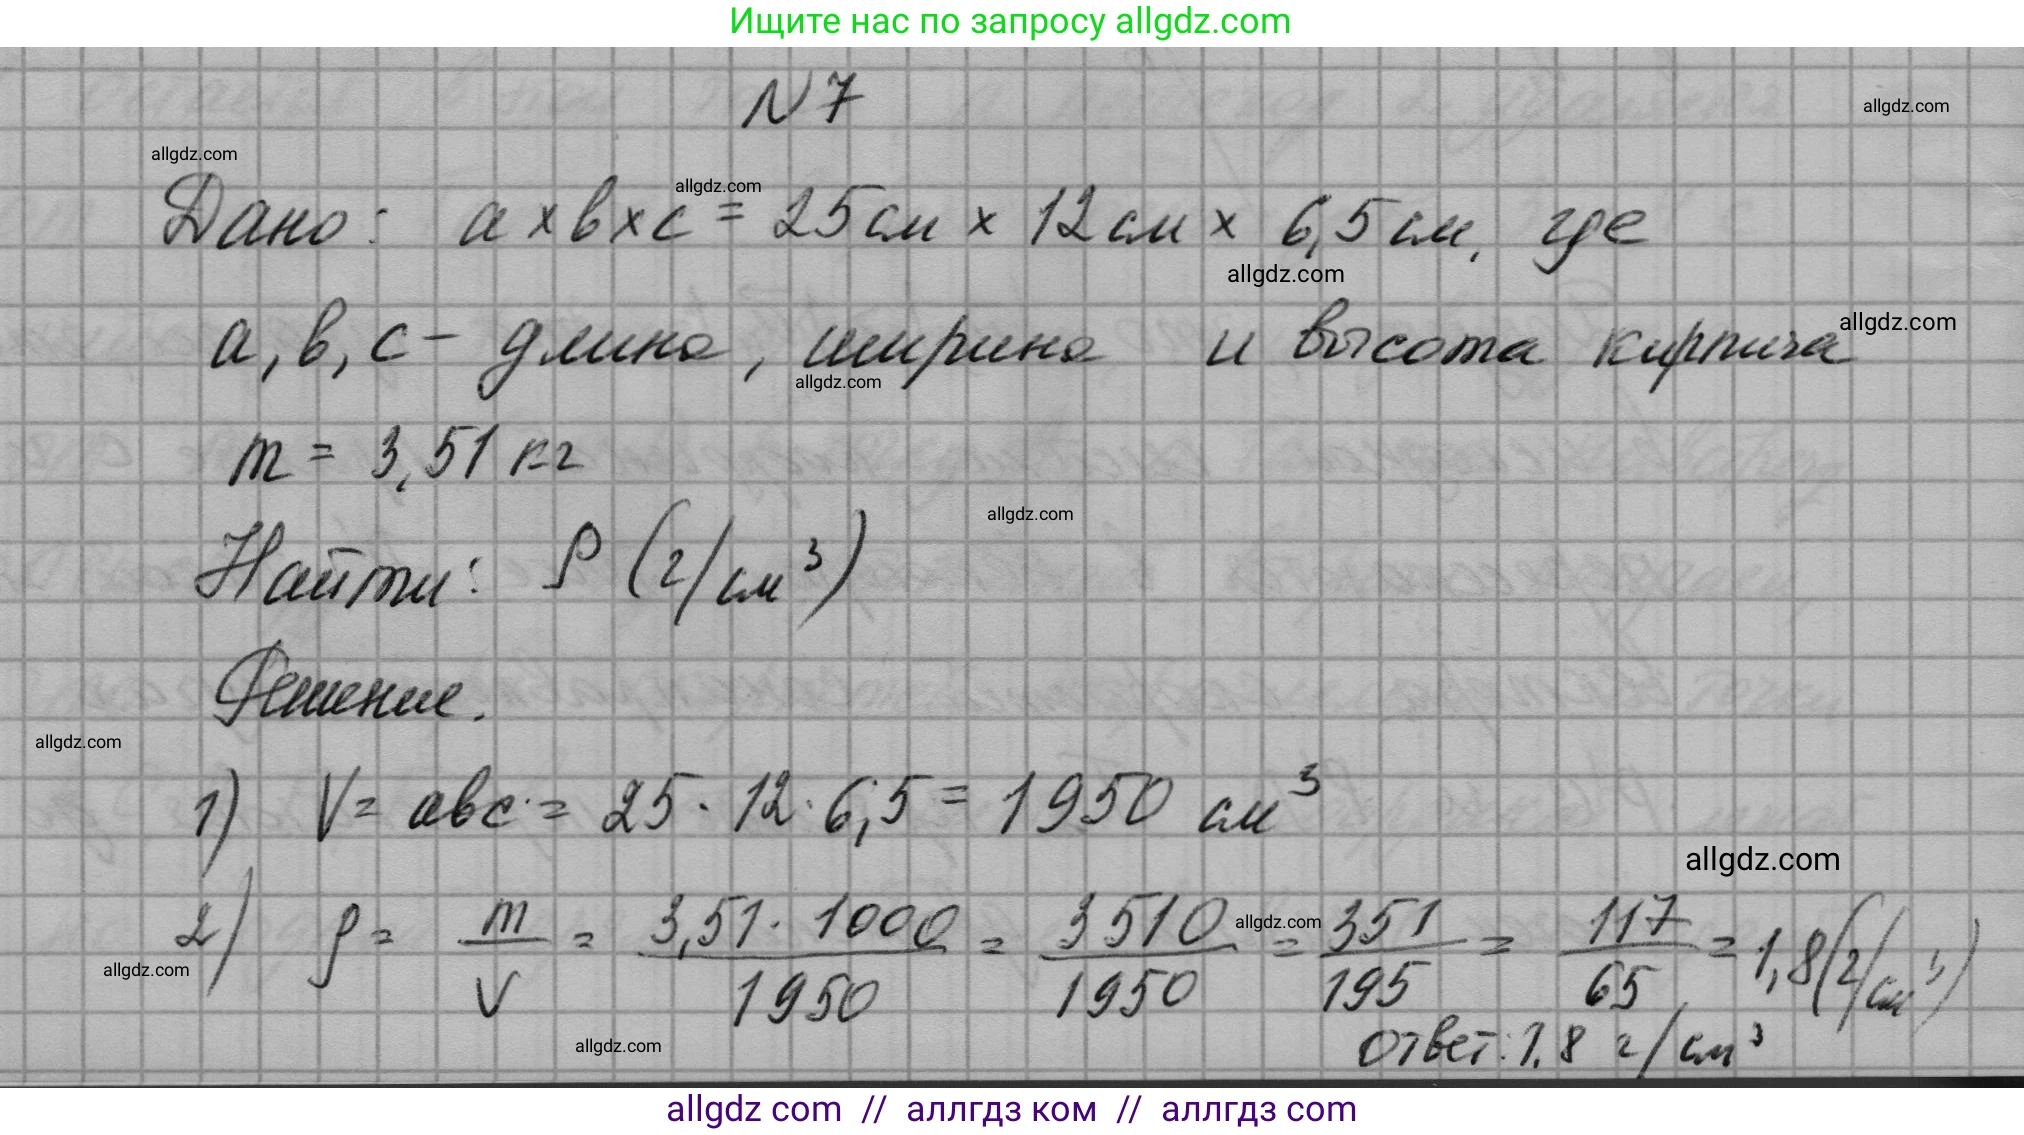 Ищите нас по запросу allgdz.com
N 7
allgdz.com
allgdz.com
allgdz.com
Дано: a × b × c = 25 см × 12 см × 6,5 см, где
allgdz.com
a, b, c – длина, ширина и высота кирпича
allgdz.com
allgdz.com
m = 3,51 кг
allgdz.com
Найти: ρ (г/см³)
Решение.
allgdz.com
1) V = abc = 25 · 12 · 6,5 = 1950 см³
allgdz.com
2) ρ = m/V = 3,51 · 1000/1950 = 3510/1950 = 351/195 = 117/65 = 1,8 (г/см³)
allgdz.com
allgdz.com
allgdz.com
ответ: 1,8 г/см³
allgdz com // аллгдз ком // аллгдз com